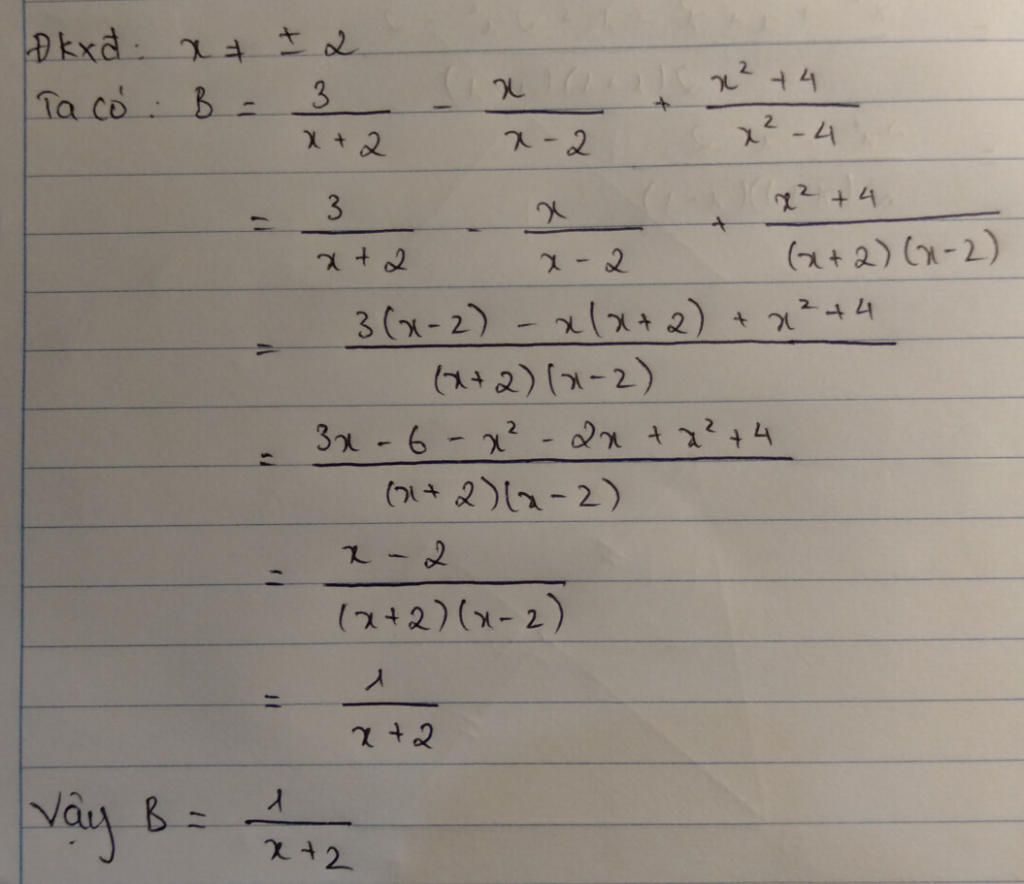 Đkxđ: x ≠ ± 2
Ta có: B = 3/(x + 2) - x/(x - 2) + (x² + 4)/(x² - 4)
= 3/(x + 2) - x/(x - 2) + (x² + 4)/((x + 2)(x - 2))
= (3(x - 2) - x(x + 2) + x² + 4)/((x + 2)(x - 2))
= (3x - 6 - x² - 2x + x² + 4)/((x + 2)(x - 2))
= (x - 2)/((x + 2)(x - 2))
= 1/(x + 2)
Vậy B = 1/(x + 2)